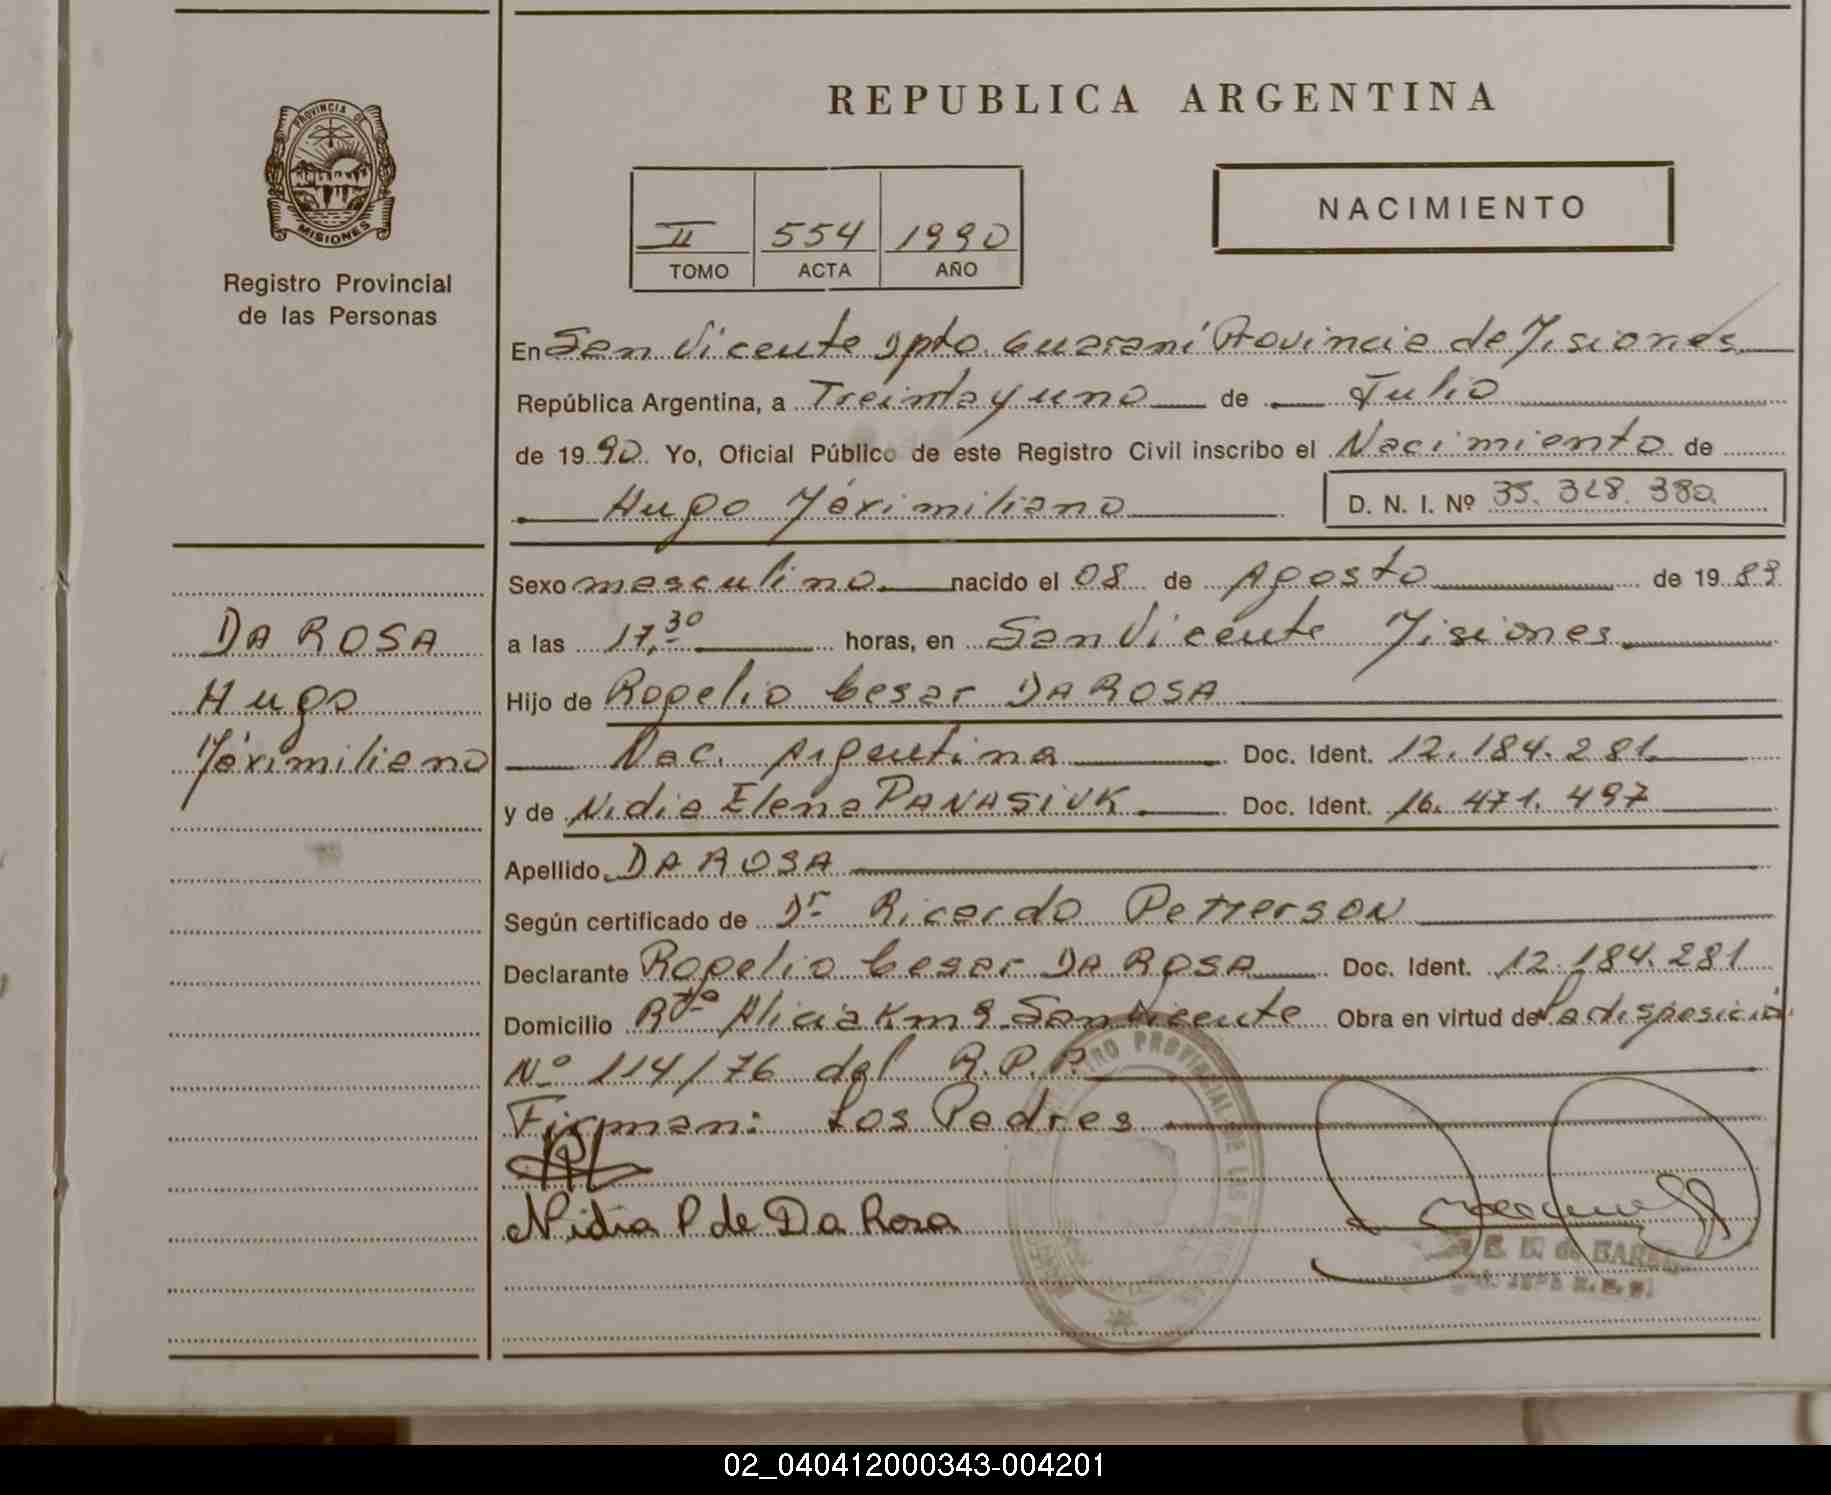 PROVINCIA DE
MISIONES
Registro Provincial
de las Personas
DA ROSA
Hugo
Máximiliano
REPUBLICA ARGENTINA
II 554 1990
TOMO ACTA AÑO
NACIMIENTO
En San Vicente Dpto. Guaraní Provincia de Misiones
República Argentina, a Treinta y uno de Julio
de 1990. Yo, Oficial Público de este Registro Civil inscribo el Nacimiento de
Hugo Máximiliano D. N. I. Nº 35.328.380
Sexo masculino nacido el 08 de Agosto de 1989
a las 17,30 horas, en San Vicente Misiones
Hijo de Rogelio Cesar DA ROSA
Nac. Argentina Doc. Ident. 12.184.281
y de Nidia Elena PANASIUK Doc. Ident. 16.471.497
Apellido DA ROSA
Según certificado de Dr Ricardo Petterson
Declarante Rogelio Cesar DA ROSA Doc. Ident. 12.184.281
Domicilio Rta Alicia Km 9 San Vicente Obra en virtud de la disposición
Nº 114/76 del R.P.P.
Firman: Los Padres
Nidia P de Da Rosa
02_040412000343-004201